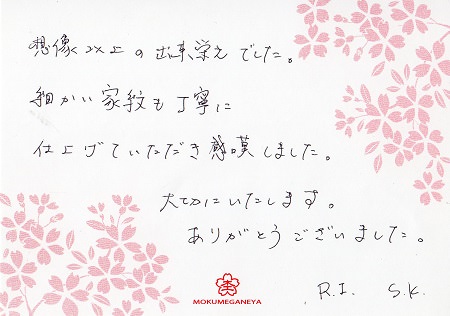 想像以上の出来栄えでした。
細かい家紋も丁寧に
仕上げていただき感嘆しました。
大切にいたします。
ありがとうございました。
R.I. S.K.
MOKUMEGANEYA